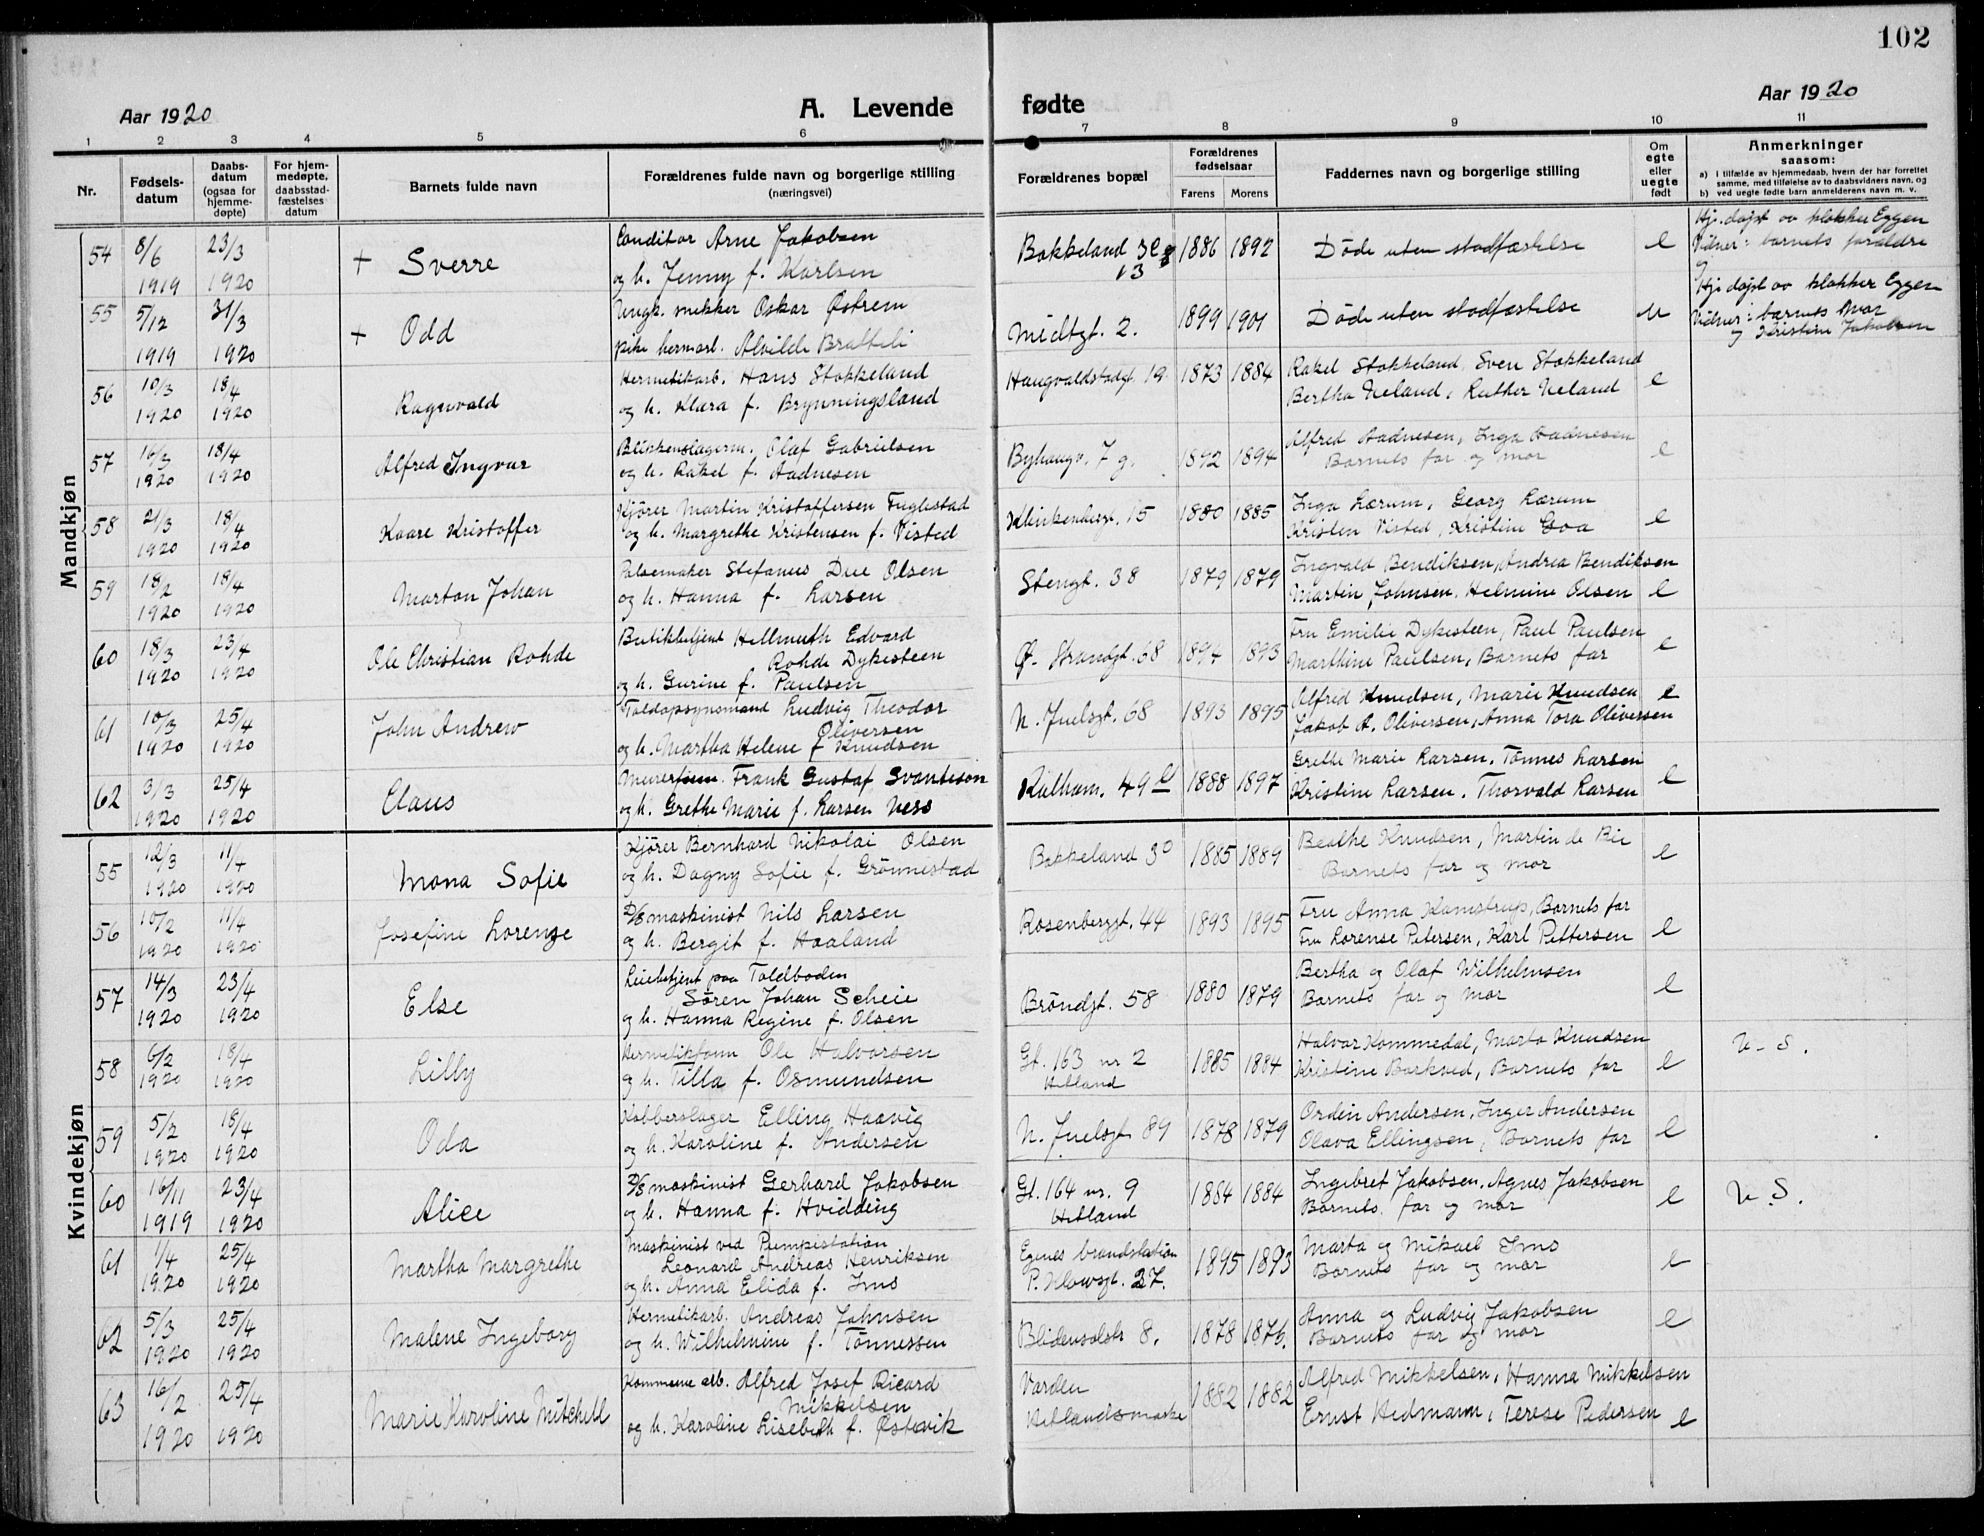 102
Aar 1920
A. Levende fødte
Aar 1920
1 2 3 4 5 6 7 8 9 10 11
Nr.
Fødsels-
datum
Daabs-
datum
(ogsaa for
hjemme-
døpte)
For hjem-
medøpte,
daabsstad-
fæstelses
datum
Barnets fulde navn
Forældrenes fulde navn og borgerlige stilling
(næringsvei)
Forældrenes bopæl
Forældrenes
fødselsaar
Farens Morens
Faddernes navn og borgerlige stilling
Om
egte
eller
uegte
født
Anmerkninger
saasom:
a) i tilfælde av hjemmedaab, hvem der har forrettet
samme, med tilføielse av to daabsvidners navn, og
b) ved uegte fødte barn anmelderens navn m. v.
Mandkjøn
54 8/6 1919 23/3 1920 + Sverre
Conditor Arne Jakobsen
og h. Jenny f. Karlsen
Bakkeland 3
13
1886 1892
Døde uten stadfæstelse
e
Hj. døpt av klokker Eggen
Vidner: barnets forældre
55 5/12 1919 31/3 1920 + Odd
Ungk. mekker Oskar Østrem
pike hermarb. Alvilde Bratteli
Midtgt. 2.
1899 1901
Døde uten stadfæstelse
u
Hj. døpt av klokker Eggen
Vidner: barnets mor
og Kristine Jakobsen
56 10/3 1920 18/4 1920 Ragnvald
Hermetikarb. Hans Stokkeland
og h. Klara f. Brynningsland
Haugvaldstadgt 19
1873 1884
Rakel Stokkeland, Sven Stokkeland
Bertha Neland, Ruther Neland
e
57 16/3 1920 18/4 1920 Alfred Ingvar
Blikkenslagerm. Olaf Gabrielsen
og h. Rakel f. Aadnesen
Byhaugv. 7 g.
1892 1894
Alfred Aadnesen, Inga Aadnesen
Barnets far og mor
e
58 21/3 1920 18/4 1920 Kaare Kristoffer
Kjører Martin Kristoffersen Fuglestad
og h. Margrethe Kristensen f. Visted
Klinkenbergt. 15
1880 1885
Inga Lærum, Georg Lærum
Kristen Visted, Kristine Goa
e
59 18/2 1920 18/4 1920 Marton Johan
Pølsemaker Stefanus Due Olsen
og h. Hanna f. Larsen
Stengt. 38
1879 1879
Ingvald Bendiksen, Andrea Bendiksen
Martin Johnsen, Helmine Olsen
e
60 18/3 1920 23/4 1920 Ole Christian Rohde
Butikbetjent Hellmuth Edvard
Rohde Dykesteen
og h. Gurine f. Paulsen
Ø. Strandgt. 68
1894 1893
Fru Emilie Dykesteen, Paul Paulsen
Marthine Paulsen, Barnets far
e
61 10/3 1920 25/4 1920 John Andrew
Toldopsynsmand Ludvig Theodor
Oliversen
og h. Martha Helene f Knudsen
N. Juelsgt. 68
1893 1895
Alfred Knudsen, Marie Knudsen
Jakob A. Oliversen, Anna Tora Oliversen
e
62 3/3 1920 25/4 1920 Claus
Murerform. Frank Gustaf Svanteson
og h. Grethe Marie f. Larsen Ness
Kalham. 49
1888 1897
Grethe Marie Larsen, Tønnes Larsen
Kristine Larsen, Thorvald Larsen
e
Kvindekjøn
55 12/3 1920 11/4 1920 Mona Sofie
Kjører Bernhard Nikolai Olsen
og h. Dagny Sofie f. Grønnestad
Bakkeland 30
1885 1889
Beathe Knudsen, Martin de Bie
Barnets far og mor
e
56 10/2 1920 11/4 1920 Josefine Lorenze
D/S maskinist Nils Larsen
og h. Bergit f. Haaland
Rosenberggt. 44
1893 1895
Fru Anna Kamstrup, Barnets far
Fru Lorense Petersen, Karl Pettersen
e
57 14/3 1920 23/4 1920 Else
Leiebetjent paa Toldboden
Søren Johan Scheie
og h. Hanna Regine f. Olsen
Brøndgt. 58
1880 1879
Bertha og Olaf Wilhelmsen
Barnets far og mor
e
58 6/2 1920 18/4 1920 Lilly
Hermetikform Ole Halvorsen
og h. Tilla f. Osmundsen
Gt. 163 nr 2
Hetland
1885 1884
Halvor Kommedal, Marta Knudsen
Kristine Borkved, Barnets far
e
U. S.
59 5/2 1920 18/4 1920 Oda
Kobberslager Elling Haavig
og h. Karoline f. Andersen
N. Juelsgt 89
1878 1879
Ordin Andersen, Inger Andersen
Olava Ellingsen, Barnets far
e
60 16/11 1919 23/4 1920 Alice
D/S maskinist Gerhard Jakobsen
og h. Hanna f. Hvidding
Gt. 164 nr. 9
Hetland
1884 1884
Ingebret Jakobsen, Agnes Jakobsen
Barnets far og mor
e
U. S.
61 1/4 1920 25/4 1920 Martha Margrethe
Maskinist ved Pumpestation
Leonard Andreas Henriksen
og h. Anna Elida f. Ims
Egenes brandstation
P. Klowsgt. 27.
1895 1893
Marta og Mikael Ims
Barnets far og mor
e
62 5/3 1920 25/4 1920 Malene Ingeborg
Hermetikarb. Andreas Johnsen
og h. Wilhelmine f. Tønnessen
Blidensolstr 8.
1878 1876.
Anna og Ludvig Jakobsen
Barnets far og mor
e
63 16/2 1920 25/4 1920 Marie Karoline Mitchell
Kommune arb. Alfred Josef Ricard
Mikkelsen
og h. Karoline Lisebeth f. Østevik
Varden
Hetlandsmarke
1882 1882
Alfred Mikkelsen, Hanna Mikkelsen
Ernst Hedmann, Terese Pedersen
e